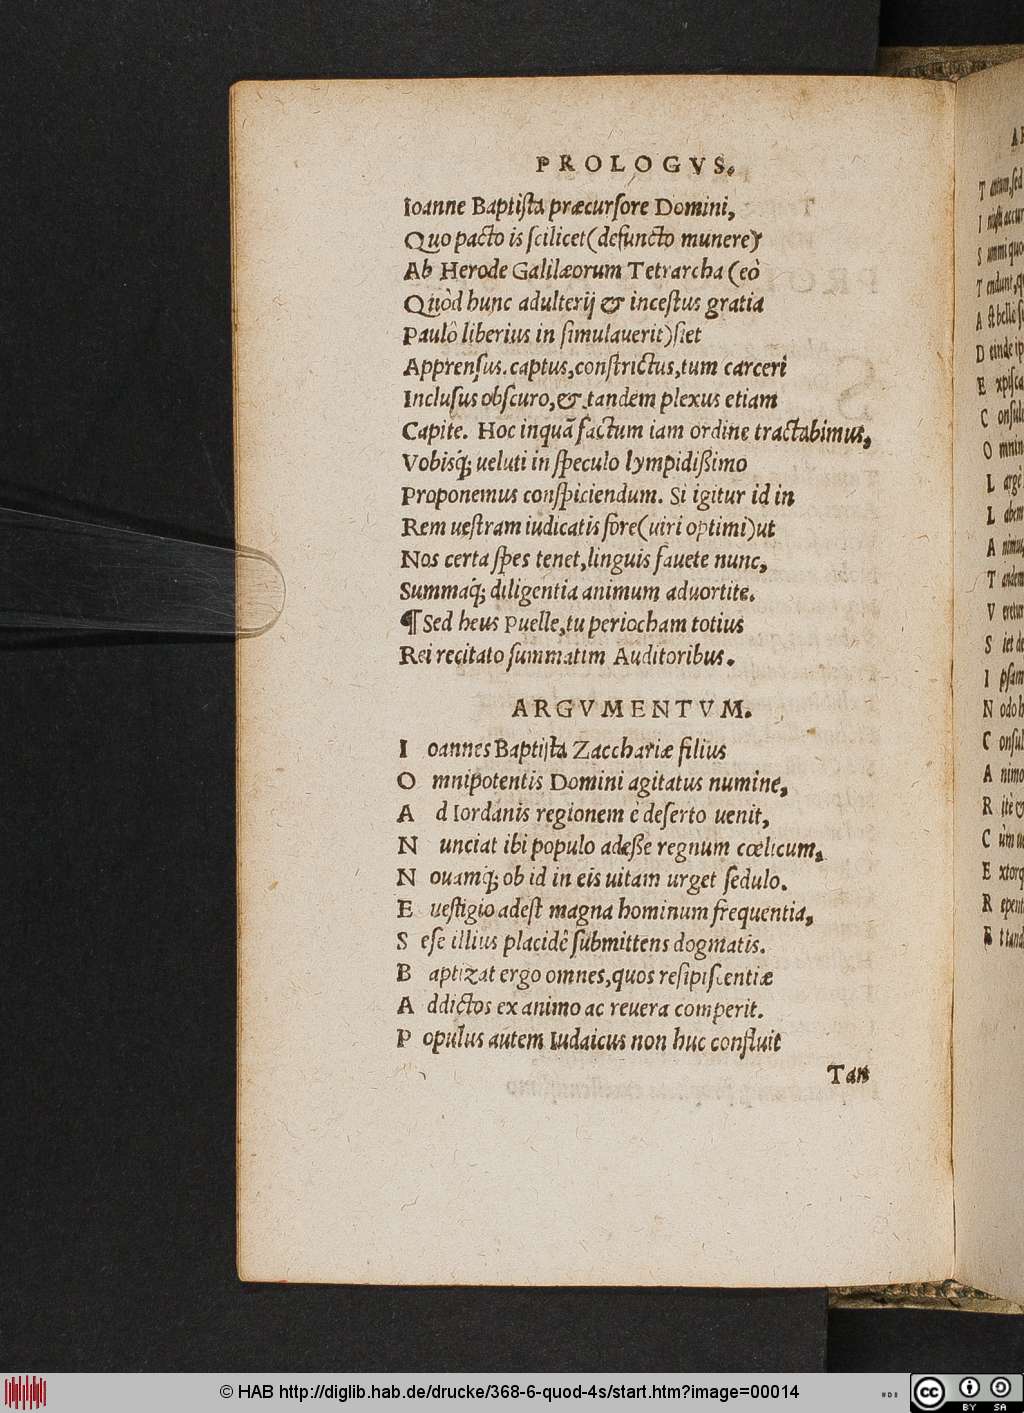 PROLOGVS.
Ioanne Baptista præcursore Domini,
Quo pacto is scilicet (defuncto munere)
Ab Herode Galilæorum Tetrarcha (eò
Quòd hunc adulterij & incestus gratia
Paulô liberius insimulauerit) siet
Apprensus. captus, constrictus, tum carceri
Inclusus obscuro, &. tandem plexus etiam
Capite. Hoc inquã factum iam ordine tractabimus,
Vobisq́; ueluti in speculo lympidißimo
Proponemus conspiciendum. Si igitur id in
Rem uestram iudicatis fore (uiri optimi) ut
Nos certa spes tenet, linguis fauete nunc,
Summaq́; diligentia animum aduortite.
¶ Sed heus Puelle, tu periocham totius
Rei recitato summatim Auditoribus.
ARGVMENTVM.
I oannes Baptista Zacchariæ filius
O mnipotentis Domini agitatus numine,
A d Iordanis regionem è deserto uenit,
N unciat ibi populo adeße regnum cœlicum,
N ouamq́; ob id in eis uitam urget sedulo.
E uestigio adest magna hominum frequentia,
S ese illius placidê submittens dogmatis.
B aptizat ergo omnes, quos resipiscentiæ
A ddictos ex animo ac reuera comperit.
P opulus autem Iudaicus non huc confluit
Tan
T antum, sed
I
S ummi quo
T endunt, q
A st belle
D einde ip
E xpisca
C onsul
O mnin
L argè
L abem
A nimu
T andem
V eretur
S iet de
I psam
N odo h
C onsul
A nimo
R itè &
C ùm
E xtorq
R epent
E t tand
© HAB http://diglib.hab.de/drucke/368-6-quod-4s/start.htm?image=00014
cc BY SA